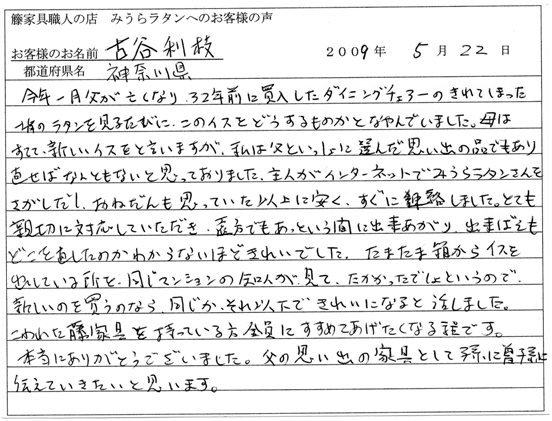 籐家具職人の店 みうらラタンへのお客様の声
お客様のお名前 古谷利枝 2009年 5月 22日
都道府県名 神奈川県
今年一月父が亡くなり、32年前に買入したダイニングチェアーのきれてしまった
籐のラタンを見るたびに、このイスをどうするものかとなやんでいました。母は
すてて、新しいイスをと言いますが、私は父といっしょに選んだ思い出の品でもあり
直せばなんともないと思っておりました。主人がインターネットでみうらラタンさんを
さがしだし、おねだんも思っていた以上に安く、すぐに連絡しました。とても
親切に対応していただき、直方でもあっという間に出来あがり、出来ばえも
どこを直したのかわからないほどきれいでした。たまたま箱からイスを
出している所を、同じマンションの知人が見て、たかかったでしょというので、
新しいのを買うのなら、同じか、それ以下できれいになると話しました。
こわれた藤家具を持っている方全員にすすめてあげたくなる程です。
本当にありがとうございました。父の思い出の家具として孫に曽孫に
伝えていきたいと思います。